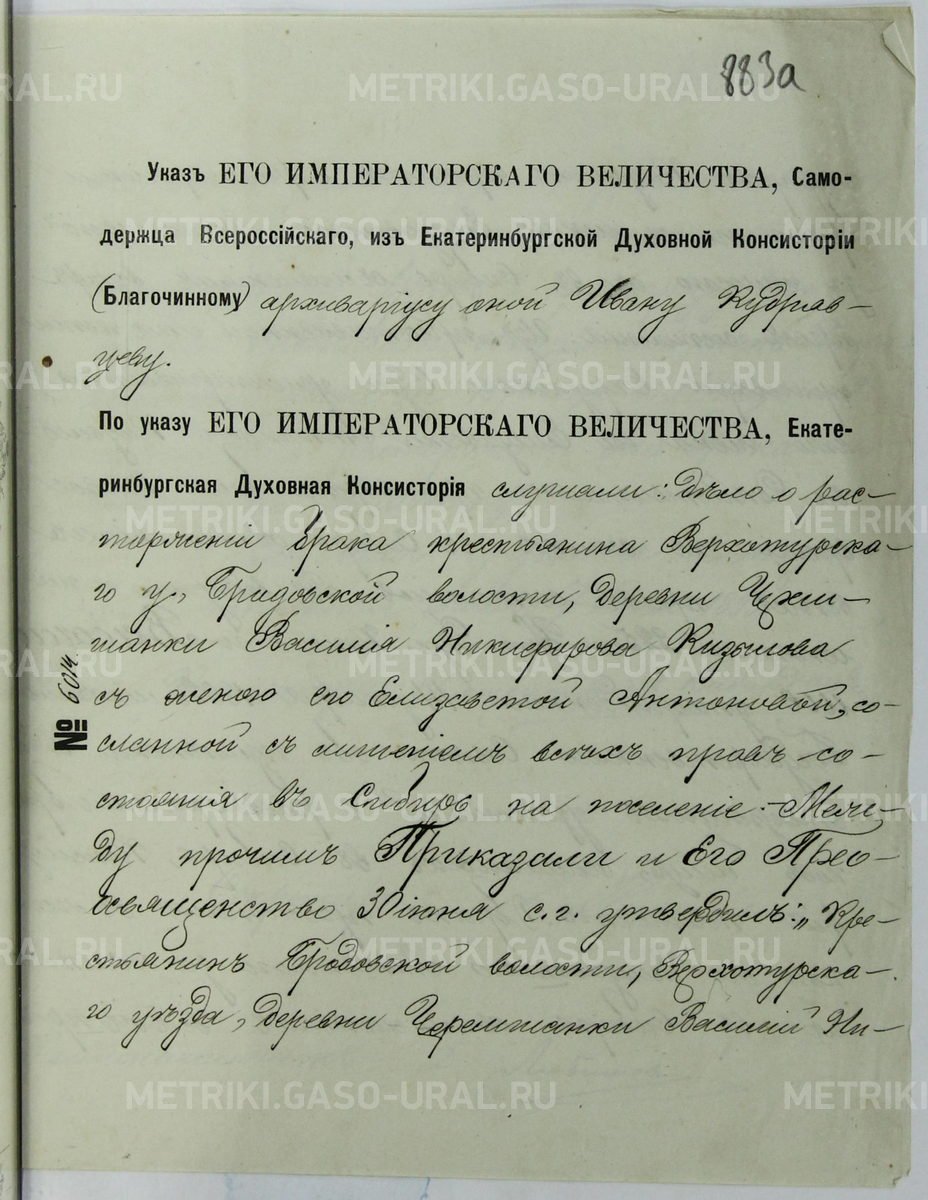 883а
Указъ ЕГО ИМПЕРАТОРСКАГО ВЕЛИЧЕСТВА, Само-
держца Всероссійскаго, изъ Екатеринбургской Духовной Консисторіи
(Благочинному) архиваріусу оной Ивану Кудряв-
цеву.
По указу ЕГО ИМПЕРАТОРСКАГО ВЕЛИЧЕСТВА, Екате-
ринбургская Духовная Консисторія слушали: дѣло о рас-
торженіи брака крестьянина Верхотурска-
го у., Бродовской волости, деревни
Василія Никифорова Кизылова
съ женою его Елизаветой Антоновой, со-
сланной съ лишеніемъ всѣхъ правъ со-
стоянія въ Сибирь на поселеніе. Меж-
ду прочимъ Приказали и Его Прео-
священство 30 іюня с. г. утвердилъ: „Кре-
стьянинъ Бродовской волости, Верхотурска-
го уѣзда, деревни Черемшанки Василій Ни-
№ 6014.
METRIKI.GASO-URAL.RU